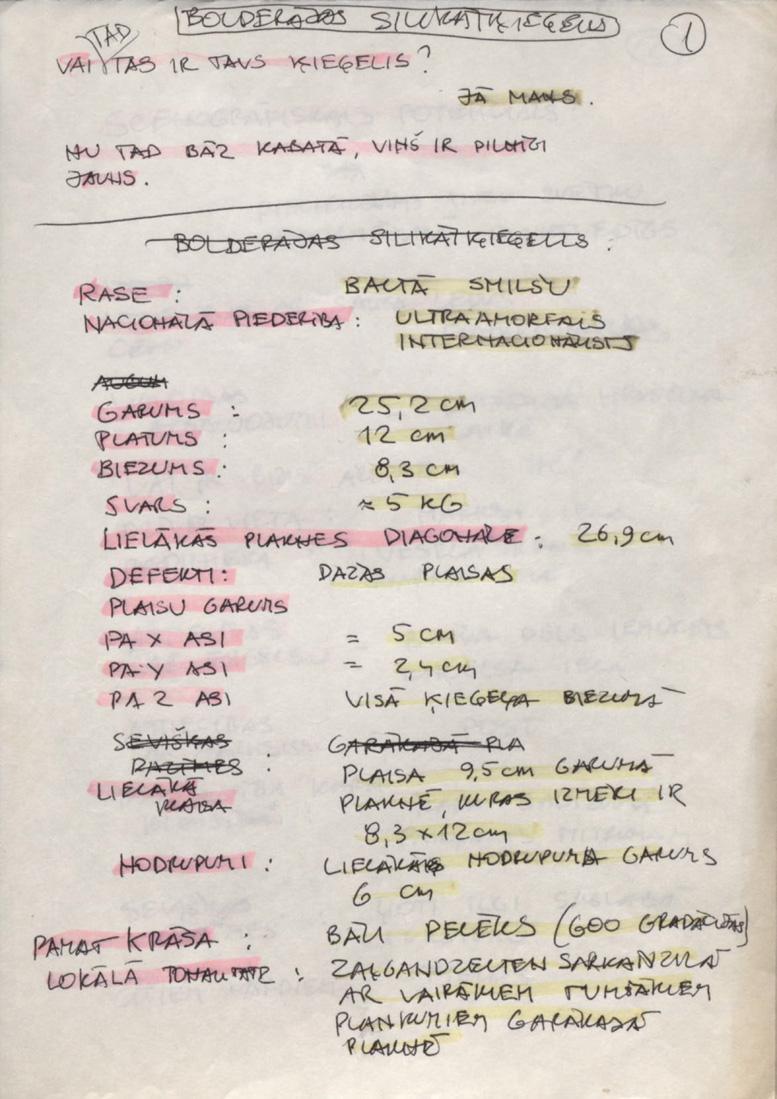 BOLDERAJAS SILIKĀTĶIEĢELIS
1
TAD
VAI TAS IR TAVS ĶIEĢELIS?
JĀ MANS.
NU TAD BĀZ KABATĀ, VIŅŠ IR PILNĪGI
JAUNS.
BOLDERAJAS SILIKĀTĶIEĢELIS:
RASE: BALTĀ SMILŠU
NACIONĀLĀ PIEDERĪBA: ULTRAAMORFAIS
INTERNACIONĀLISTS
AUGUM
GARUMS: 25,2 cm
PLATUMS: 12 cm
BIEZUMS: 8,3 cm
SVARS: ≈ 5 KG
LIELĀKĀS PLAKNES DIAGONĀLE: 26,9 cm
DEFEKTI: DAŽAS PLAISAS
PLAISU GARUMS
PA X ASI = 5 CM
PA Y ASI = 2,4 cm
PA Z ASI VISĀ ĶIEĢEĻA BIEZUMĀ
SEVIŠKAS GARĀKAJĀ PLA
PAZĪMES: PLAISA 9,5 cm GARUMĀ
LIELĀKĀ PLAISA PLAKNĒ, KURAS IZMĒRI IR
8,3 x 12 cm
NODRUPUMI: LIELĀKAIS NODRUPUMA GARUMS
6 CM
PAMATKRĀSA: BĀLI PELĒKS (600 GRADĀCIJAS)
LOKĀLĀ TONALITĀTE: ZAĻGANDZELTEN SARKANZILĀ
AR VAIRĀKIEM TUMŠĀKIEM
PLANKUMIEM GARĀKAJĀ
PLAKNĒ